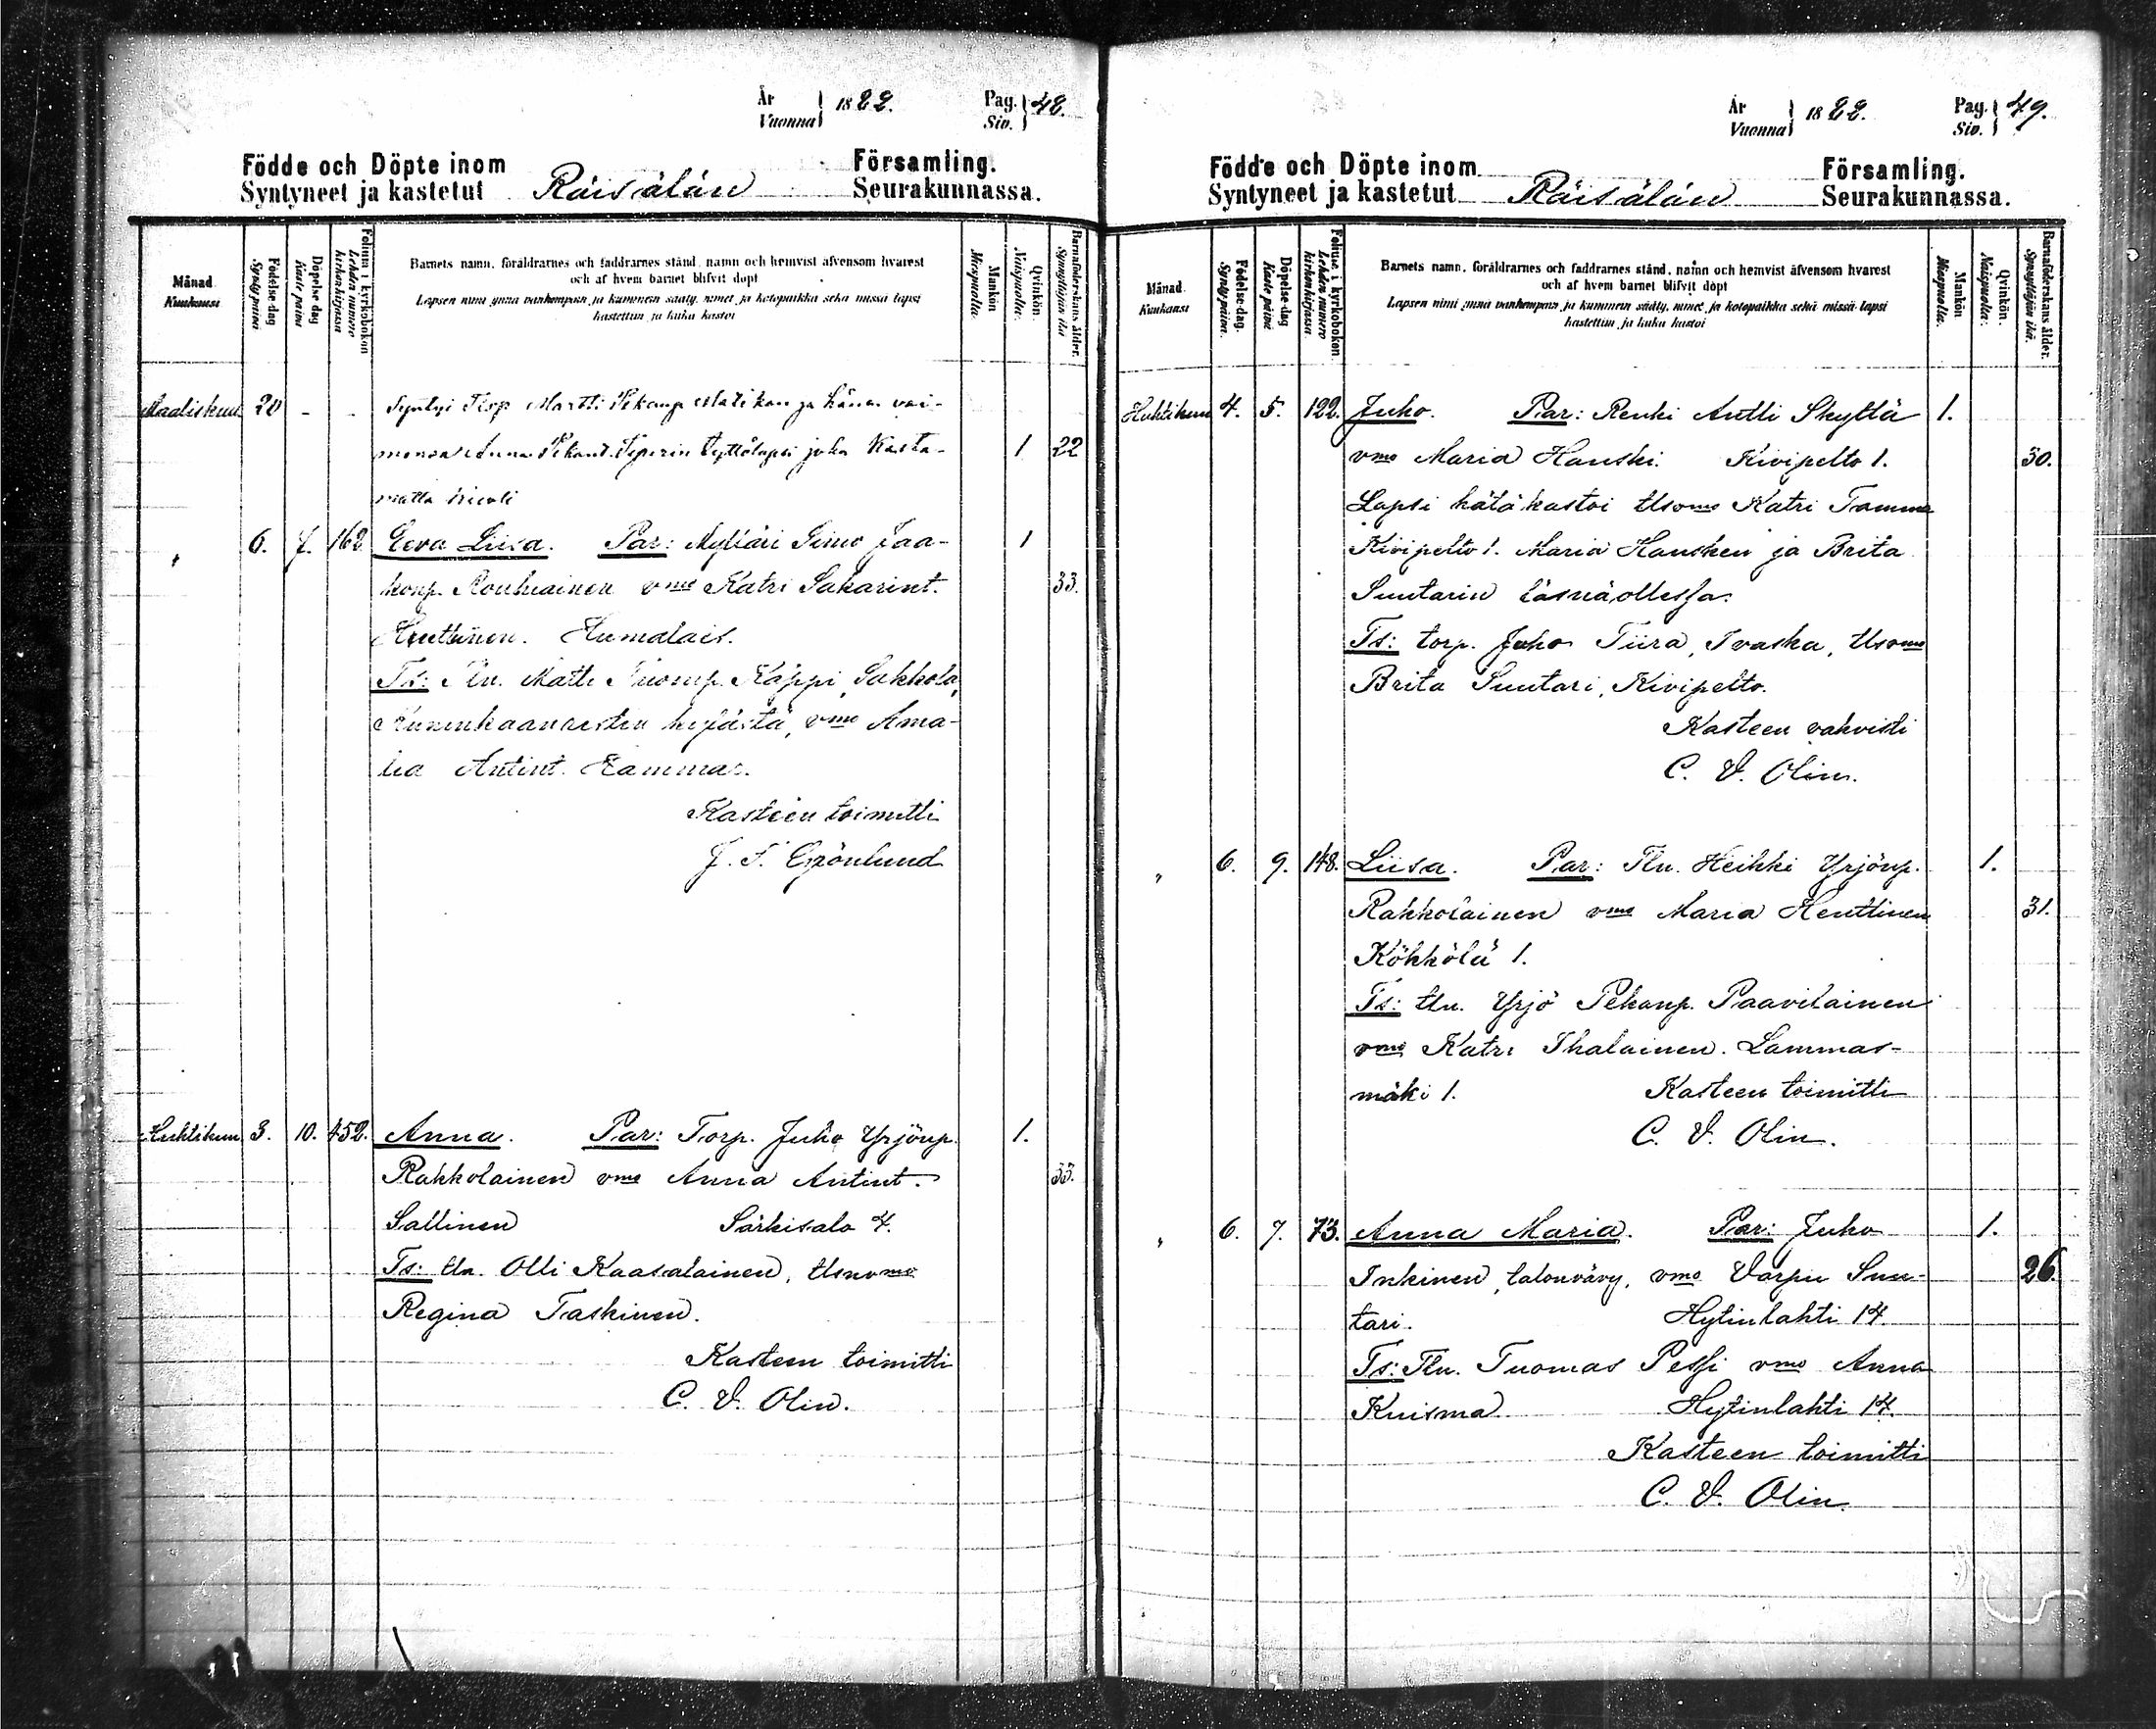 År
Vuonna 1882.
Pag.
Siv. 48.
Födde och Döpte inom Församling.
Syntyneet ja kastetut Räisälän Seurakunnassa.
Månad.
Kuukausi
Födelse-dag
Synty päivä
Döpelse dag
Kaste päivä
Folium i kyrkobokon
Lehden numero kirkonkirjassa
Barnets namn, föräldrarnes och faddrarnes stånd, namn och hemvist äfvensom hvarest
och af hvem barnet blifvit döpt
Lapsen nimi ynnä vanhempain ja kummein sääty, nimet ja kotopaikka sekä missä lapsi
kastettiin ja kuka kastoi
Mankön
Miespuolia.
Qvinkön.
Naispuolia.
Barnaföderskans ålder.
Synnyttäjän ikä
Maaliskuu 20 - - Syntyi Martti Pekanp. ja hänen vai-
monsa Anna tyttölapsi joka Kasta- 1 22
matta kuoli
" 6. 7. 162 Eeva Liisa. Par: Mylläri Simo Jaa- 1
konp. Rouhiainen vmo Katri Sakarint. 33.
Henttinen. Humalais.
Ts: Tln. Matti Tuomp. Käppi, Sakkola,
kylästä, vmo Ama-
lia Antint. Hammar.
Kasteen toimitti
J. F. Grönlund
Huhtikuu 3. 10. 452. Anna. Par: Torp. Juho Yrjönp. 1.
Rakkolainen vmo Anna Antint. 33.
Sallinen Särkisalo 4.
Ts: tln. Olli Kaasalainen, Itsnvmo
Regina Taskinen.
Kasteen toimitti
C. V. Olin.
År
Vuonna 1882.
Pag.
Siv. 49.
Födde och Döpte inom Församling.
Syntyneet ja kastetut Räisälän Seurakunnassa.
Månad.
Kuukausi
Födelse-dag.
Synty päivä.
Döpelse-dag
Kaste päivä
Folium i kyrkobokon.
Lehden numero kirkonkirjassa.
Barnets namn, föräldrarnes och faddrarnes stånd, namn och hemvist äfvensom hvarest
och af hvem barnet blifvit döpt
Lapsen nimi ynnä vanhempain ja kummein sääty, nimet ja kotopaikka sekä missä lapsi
kastettiin ja kuka kastoi
Mankön
Miespuolia.
Qvinkön.
Naispuolia.
Barnaföderskans ålder.
Synnyttäjän ikä.
Huhtikuu 4. 5. 122. Juho. Par: Renki Antti Skyttä 1.
vmo Maria Hanski. Kivipelto 1. 30.
Lapsi hätäkastoi Itsvmo Katri Tamme
Kivipelto 1. Maria Hansken ja Brita
Suutarin läsnäollessa.
Ts: torp. Juho Tiira, Ivaska, Itsvmo
Brita Suutari, Kivipelto.
Kasteen vahvisti
C. V. Olin.
" 6. 9. 148. Liisa. Par: Tln. Heikki Yrjönp. 1.
Rakkolainen vmo Maria Henttinen 31.
Kökkölä 1.
Ts: tln. Yrjö Pekanp. Paavilainen
vmo Katri Ihalainen. Lammas-
mäki 1. Kasteen toimitti
C. V. Olin.
" 6. 7. 73. Anna Maria. Par: Juho 1.
Inkinen, talonvävy, vmo Varpu Suu- 26.
tari. Hytinlahti 14.
Ts: Tln. Tuomas Pessi vmo Anna
Kuisma Hytinlahti 14.
Kasteen toimitti
C. V. Olin.